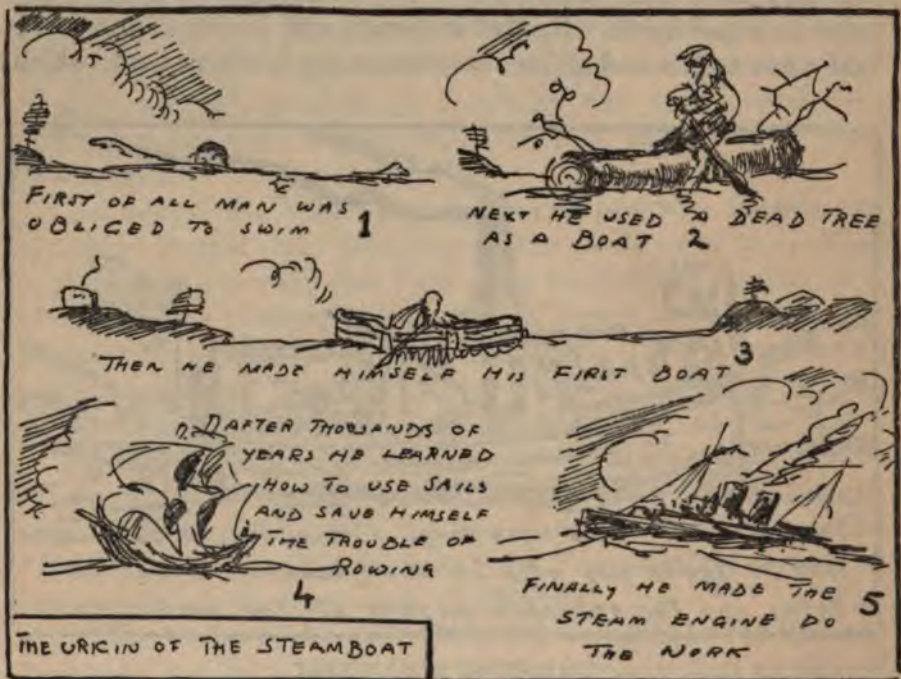 FIRST OF ALL MAN WAS
OBLIGED TO SWIM
1
NEXT HE USED A DEAD TREE
AS A BOAT 2
3
THEN HE MADE HIMSELF HIS FIRST BOAT
AFTER THOUSANDS OF
YEARS HE LEARNED
HOW TO USE SAILS
AND SAVE HIMSELF
THE TROUBLE OF
ROWING
4
FINALLY HE MADE THE
STEAM ENGINE DO
THE WORK
5
THE ORIGIN OF THE STEAMBOAT